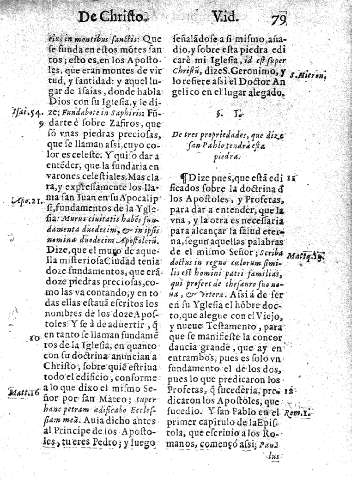 De Christo. Vid. 79
eius in montibus sanctis: Que
se funda en estos mõtes san
tos; esto es, en los Aposto-
les, que eran montes de vir
tud, y santidad: y aquel lu-
gar de Isaias, donde habla
Dios con su Iglesia, y le di-
Isai. 54. ze; Fundabo te in Saphiris: Fũ-
darte é sobre Zafiros, que
só vnas piedras preciosas,
que se llaman assi, cuyo co-
lor es celeste. Y quiso dar a
entẽder, que la fundaria en
varones celestiales. Mas cla
ra, y expressamente los lla-
Apo. 21. ma san Iuan en su Apocalip
si, fundamentos de la Ygle
sia: Murus ciuitatis habẽs fun
damenta duodecim, & in ipsis
nomina duodecim Apostolorũ.
Dize, que el muro de aque-
lla misteriosa Ciudad tenia
doze fundamentos, que erã
doze piedras preciosas, co-
mo las va contando, y en to
das ellas estauã escritos los
nombres de los doze Apos-
toles. Y se á de aduertir, q̃
10 en tanto se llaman fundamẽ
tos de la Iglesia, en quanto
con su doctrina anuncian a
Christo, sobre quiẽ estriua
todo el edificio, conforme
Matt. 16 a lo que dixo el mismo Se-
ñor por san Mateo; super
hanc petram ædificabo Eccles-
siam meã. Auia dicho antes
al Principe de los Aposto-
les, tu eres Pedro; y luego
señalãdose a si mismo, aña-
dio, y sobre esta piedra edi
caré mi Iglesia, id est super
Christũ, dize S. Geronimo, y S. Hieron.
lo refiere assi el Doctor An
gelico en el lugar alegado.
§. I.
De tres propriedades, que dize
san Pablo tendrá esta
piedra.
¶ Dize pues, que está edi 11
ficados sobre la doctrina d̃
los Apostoles, y Profetas,
para dar a entender, que la
vna, y la otra es necessaria
para alcançar la salud eter-
na, segun aquellas palabras
de el mismo Señor; Scriba Matt. 13.
doctus in regno cælorum simi-
lis est homini patri familias,
qui profert de thesauro suo no
ua, & vetera. Assi á de ser
en su Yglesia el hõbre doc-
to, que alegue con el Viejo,
y nueuo Testamento, para
que se manifieste la concor
dancia grande, que ay en
entrambos, pues es solo vn
fundamento el de los dos,
pues lo que predicaron los
Profetas, q̃ sucederia, pre- 12
dicaron los Apostoles, que
sucedio. Y san Pablo en el Rom. 1.
primer capitulo de la Epis-
tola, que escriuio a los Ro-
manos, comẽçó assi; Pau
lus